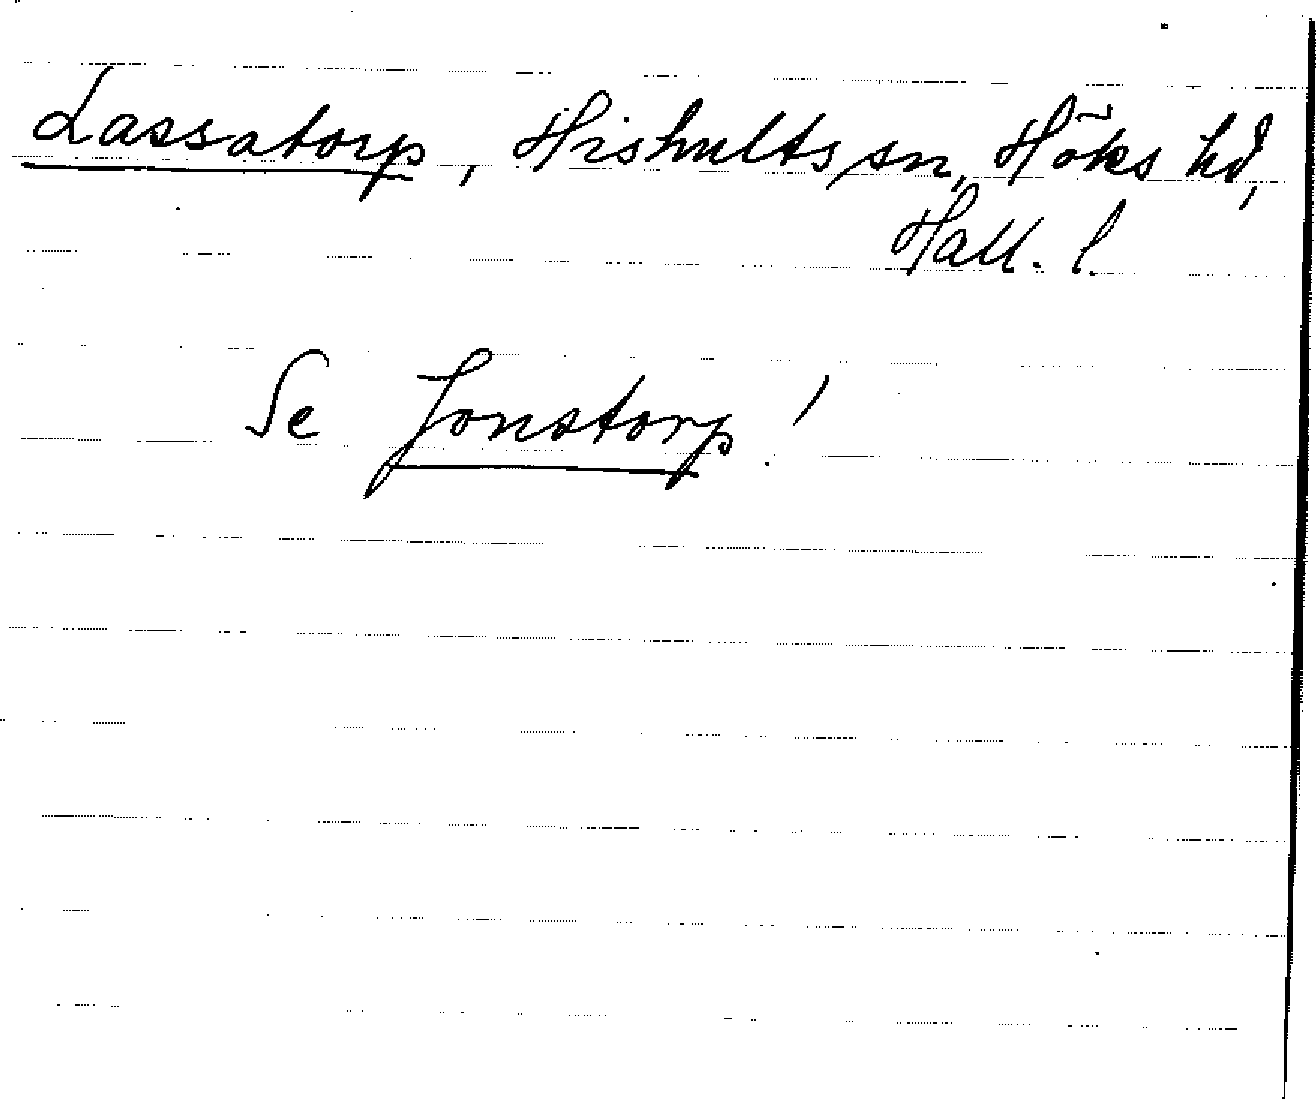 Lassatorp, Hishults sn, Höks hd,
Hall. l.
Se Jonstorp!